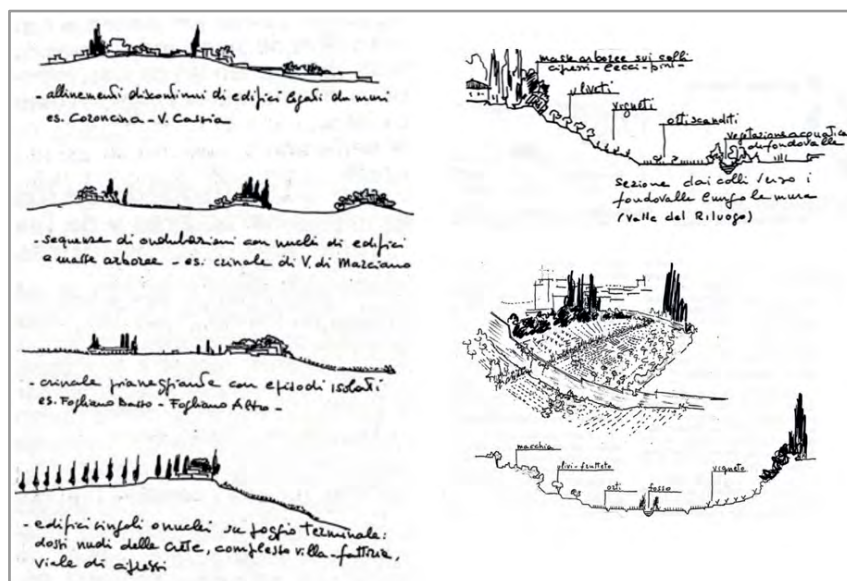 - allineamenti discontinui di edifici legati da muri
es. Coroncina - V. Cassia
- sequenze di ondulazioni con nuclei di edifici
e masse arboree - es: crinale di V. di Marciano
- crinale pianeggiante con episodi isolati
es. Fogliano Basso - Fogliano Altro -
- edifici singoli o nuclei su poggio terminale:
dossi nudi delle crete, complesso villa-fattoria,
viale di cipressi
masse arboree sui colli
cipressi - lecci - pini -
uliveti
vigneti
orti scanditi
vegetazione acquatica
di fondovalle
Sezione dai colli verso i
fondovalle lungo le mura
(Valle del Riluogo)
macchia
olivi-frutteto
orti
fosso
vigneto